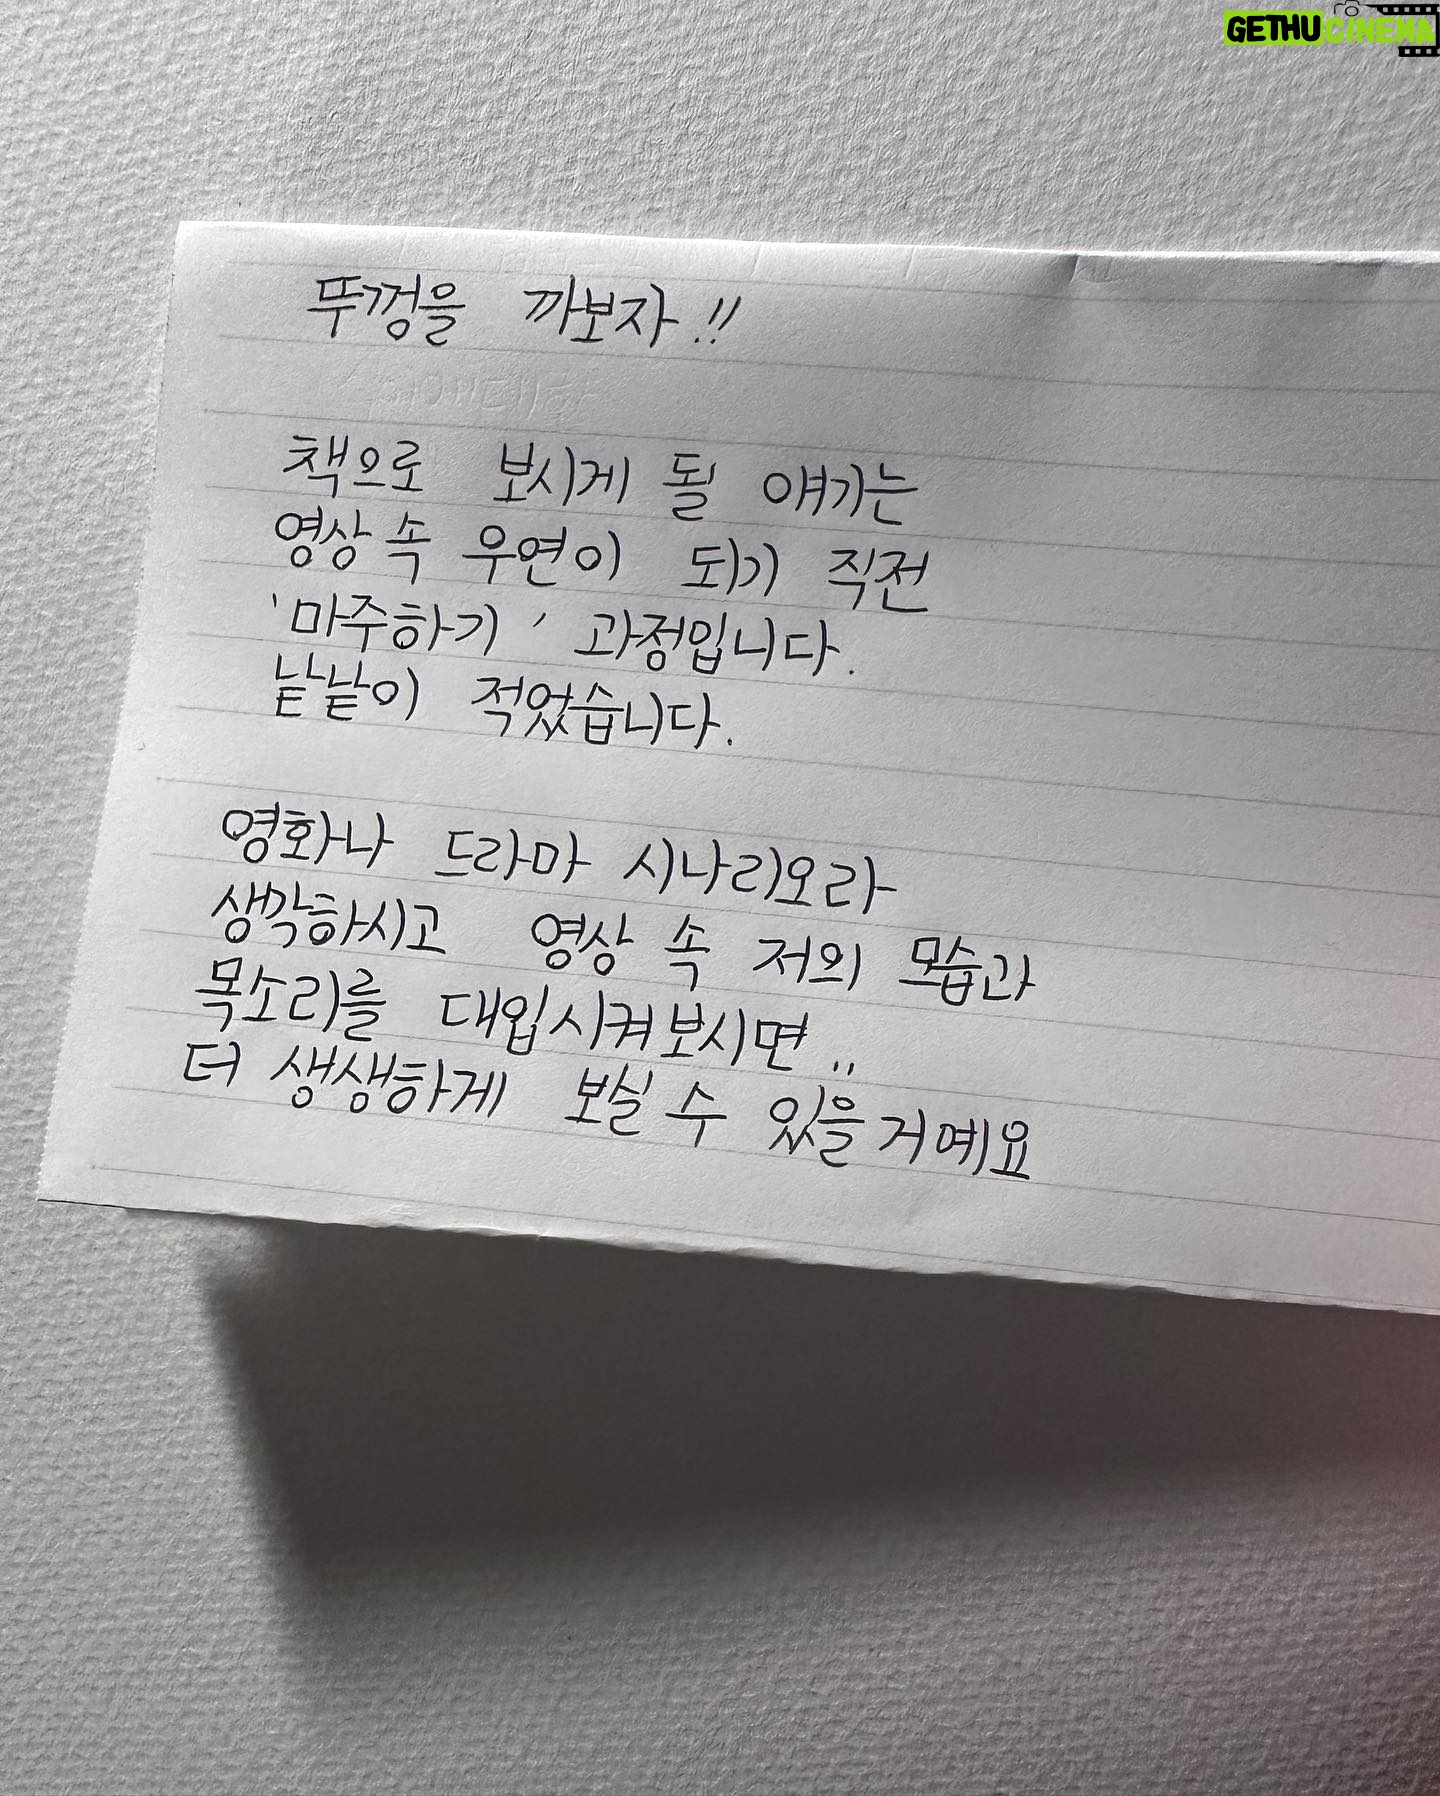 GETHUCINEMA
뚜껑을 까보자!!
책으로 보시게 될 얘기는
영상 속 우연이 되기 직전
'마주하기' 과정입니다.
낱낱이 적었습니다.
영화나 드라마 시나리오라
생각하시고 영상 속 저의 모습과
목소리를 대입시켜보시면..
더 생생하게 보실 수 있을거예요